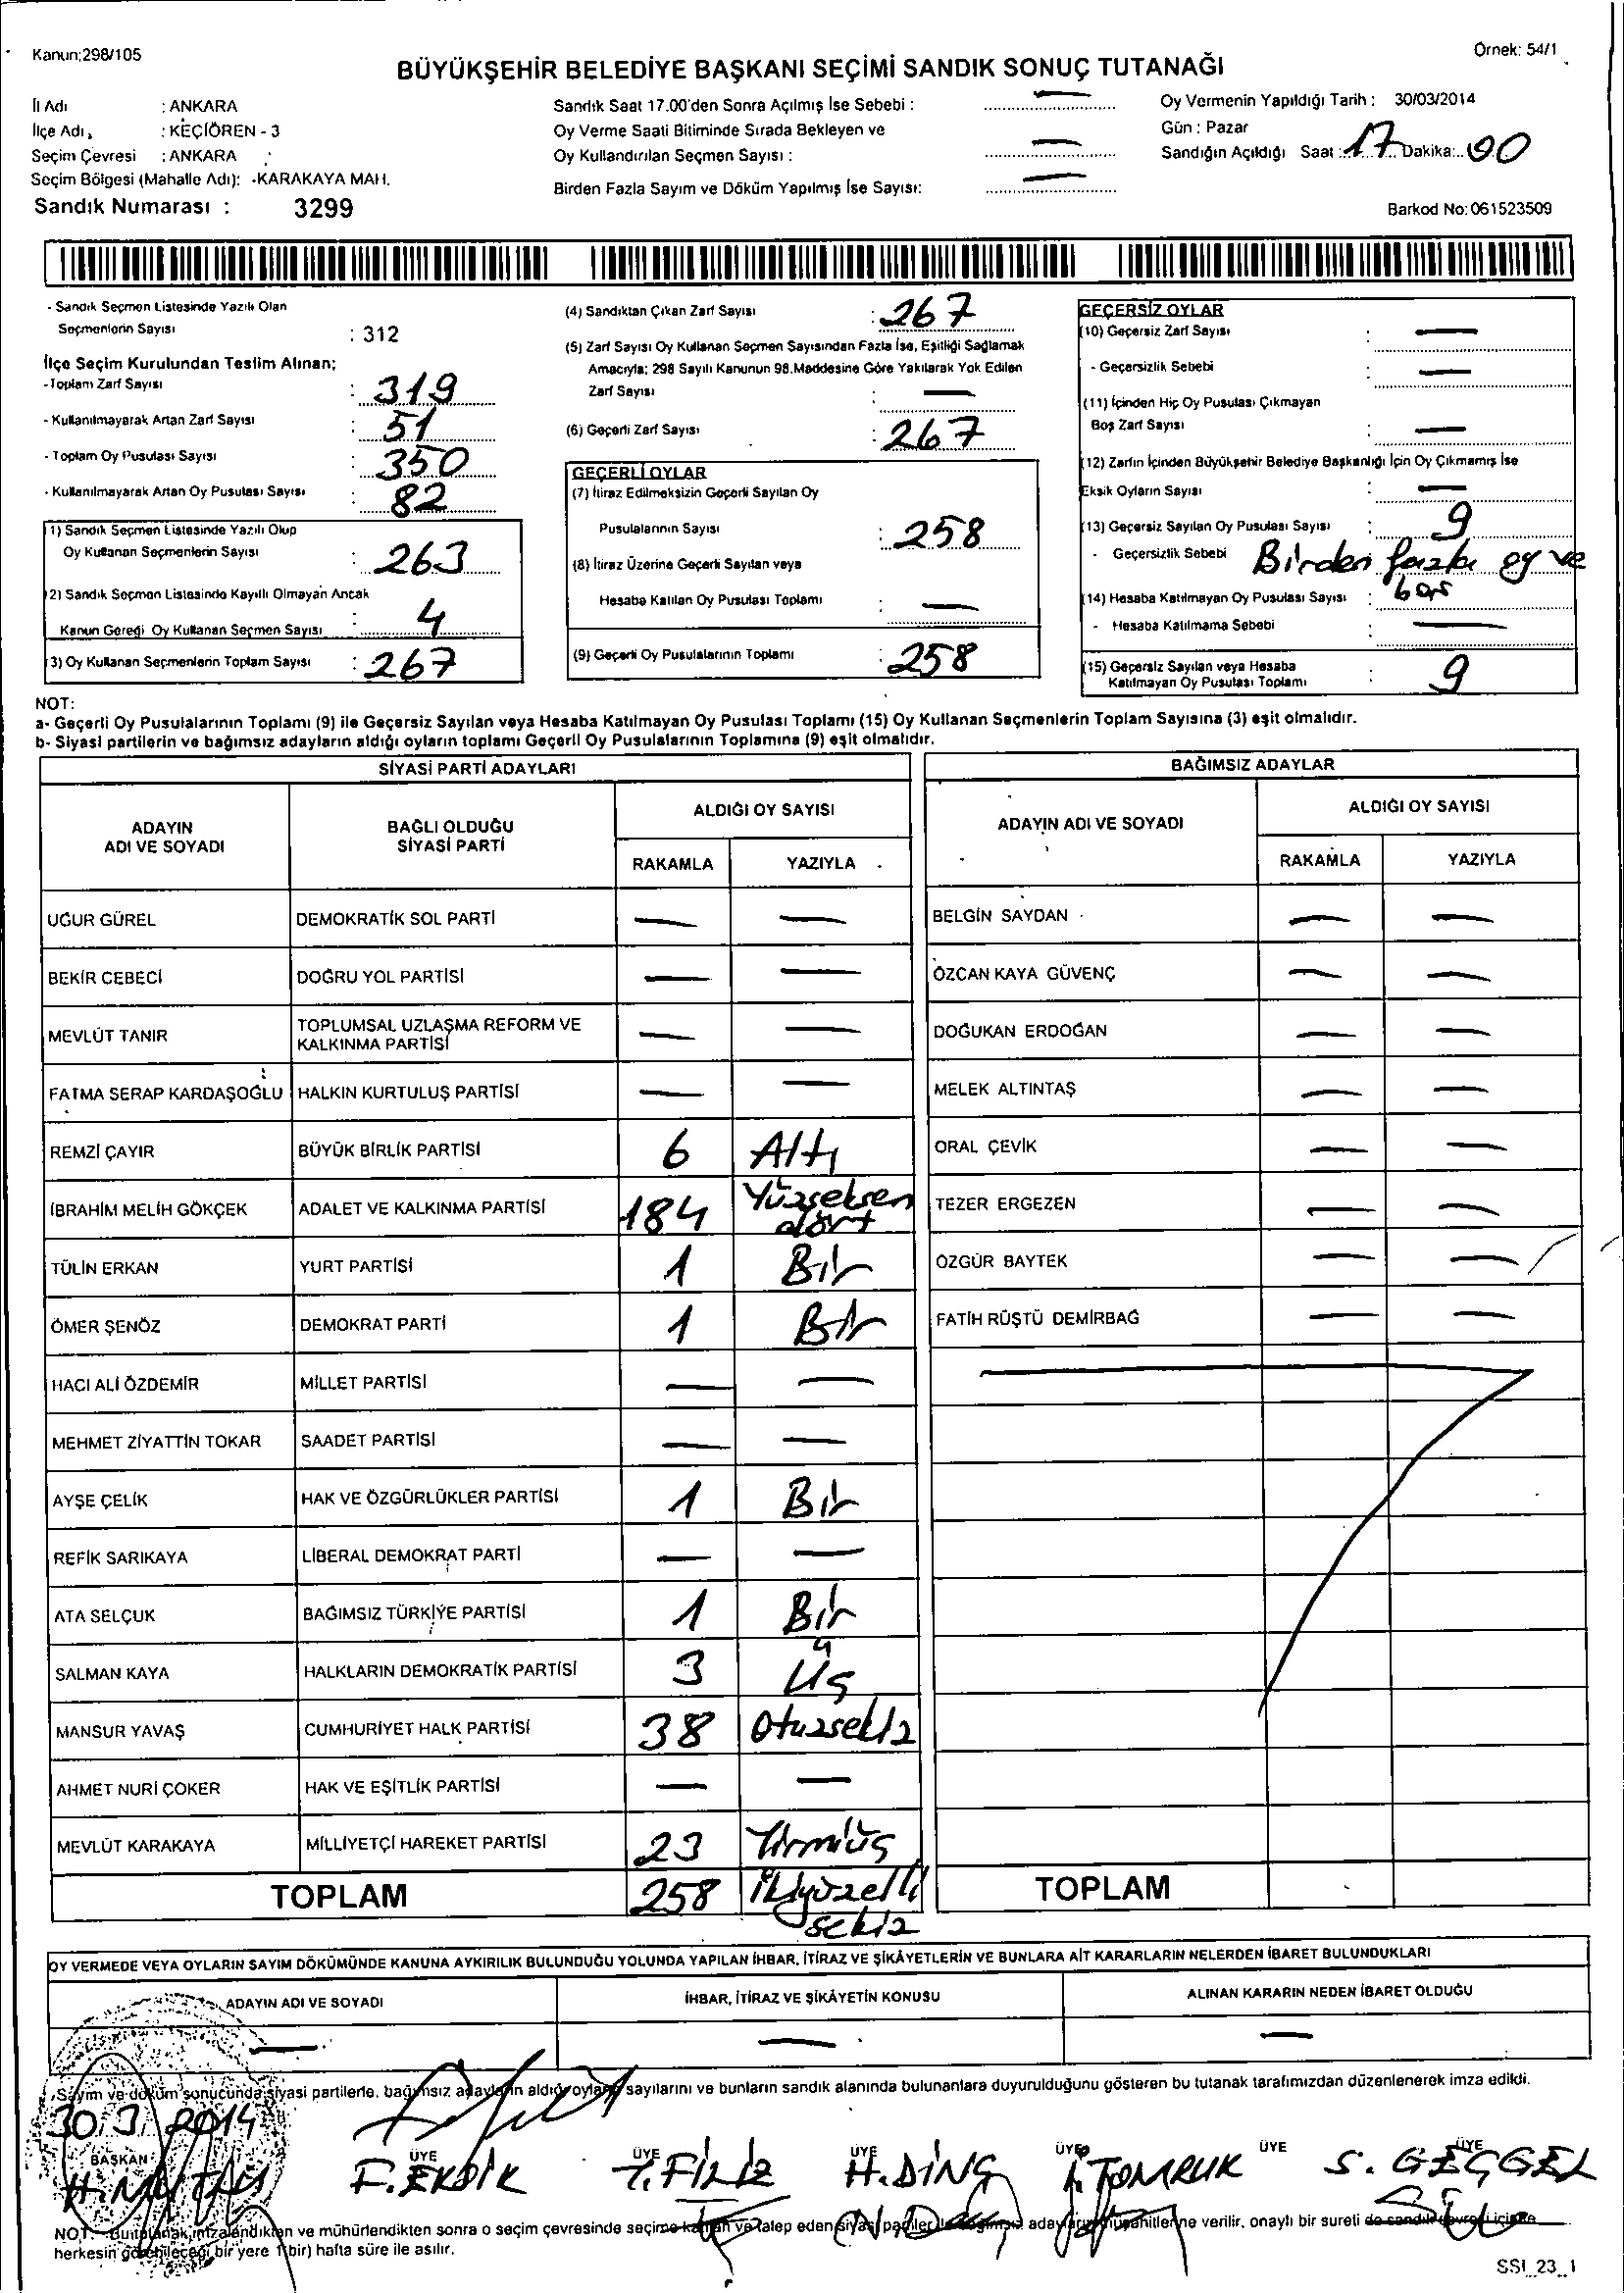 Kanun;298/105
Örnek: 54/1
BÜYÜKŞEHİR BELEDİYE BAŞKANI SEÇİMİ SANDIK SONUÇ TUTANAĞI
İl Adı : ANKARA
İlçe Adı : KEÇİÖREN - 3
Seçim Çevresi : ANKARA
Seçim Bölgesi (Mahalle Adı): -KARAKAYA MAH.
Sandık Numarası : 3299
Sandık Saat 17.00'den Sonra Açılmış İse Sebebi : —
Oy Verme Saati Bitiminde Sırada Bekleyen ve
Oy Kullandırılan Seçmen Sayısı : —
Birden Fazla Sayım ve Döküm Yapılmış İse Sayısı: —
Oy Vermenin Yapıldığı Tarih : 30/03/2014
Gün : Pazar
Sandığın Açıldığı Saat : 17 Dakika:
Barkod No: 061523509
- Sandık Seçmen Listesinde Yazılı Olan
Seçmenlerin Sayısı : 312
İlçe Seçim Kurulundan Teslim Alınan;
- Toplam Zarf Sayısı : 319
- Kullanılmayarak Artan Zarf Sayısı : 51
- Toplam Oy Pusulası Sayısı : 350
- Kullanılmayarak Artan Oy Pusulası Sayısı : 82
(1) Sandık Seçmen Listesinde Yazılı Olup
Oy Kullanan Seçmenlerin Sayısı : 263
(2) Sandık Seçmen Listesinde Kayıtlı Olmayan Ancak
Kanun Gereği Oy Kullanan Seçmen Sayısı : 4
(3) Oy Kullanan Seçmenlerin Toplam Sayısı : 267
(4) Sandıktan Çıkan Zarf Sayısı : 267
(5) Zarf Sayısı Oy Kullanan Seçmen Sayısından Fazla İse, Eşitliği Sağlamak
Amacıyla; 298 Sayılı Kanunun 98.Maddesine Göre Yakılarak Yok Edilen
Zarf Sayısı : —
(6) Geçerli Zarf Sayısı : 267
GEÇERLİ OYLAR
(7) İtiraz Edilmeksizin Geçerli Sayılan Oy
Pusulalarının Sayısı : 258
(8) İtiraz Üzerine Geçerli Sayılan veya
Hesaba Katılan Oy Pusulası Toplamı : —
(9) Geçerli Oy Pusulalarının Toplamı : 258
GEÇERSİZ OYLAR
(10) Geçersiz Zarf Sayısı : —
- Geçersizlik Sebebi : —
(11) İçinden Hiç Oy Pusulası Çıkmayan
Boş Zarf Sayısı : —
(12) Zarfın İçinden Büyükşehir Belediye Başkanlığı İçin Oy Çıkmamış İse
Eksik Oyların Sayısı : —
(13) Geçersiz Sayılan Oy Pusulası Sayısı : 9
- Geçersizlik Sebebi Birden fazla oy ve
boş
(14) Hesaba Katılmayan Oy Pusulası Sayısı :
- Hesaba Katılmama Sebebi : —
(15) Geçersiz Sayılan veya Hesaba
Katılmayan Oy Pusulası Toplamı : 9
NOT:
a- Geçerli Oy Pusulalarının Toplamı (9) ile Geçersiz Sayılan veya Hesaba Katılmayan Oy Pusulası Toplamı (15) Oy Kullanan Seçmenlerin Toplam Sayısına (3) eşit olmalıdır.
b- Siyasi partilerin ve bağımsız adayların aldığı oyların toplamı Geçerli Oy Pusulalarının Toplamına (9) eşit olmalıdır.
SİYASİ PARTİ ADAYLARI
ADAYIN ADI VE SOYADI
BAĞLI OLDUĞU SİYASİ PARTİ
ALDIĞI OY SAYISI
RAKAMLA YAZIYLA
UĞUR GÜREL DEMOKRATİK SOL PARTİ — —
BEKİR CEBECİ DOĞRU YOL PARTİSİ — —
MEVLÜT TANIR TOPLUMSAL UZLAŞMA REFORM VE KALKINMA PARTİSİ — —
FATMA SERAP KARDAŞOĞLU HALKIN KURTULUŞ PARTİSİ — —
REMZİ ÇAYIR BÜYÜK BİRLİK PARTİSİ 6 Altı
İBRAHİM MELİH GÖKÇEK ADALET VE KALKINMA PARTİSİ 184 Yüzseksen dört
TÜLİN ERKAN YURT PARTİSİ 1 Bir
ÖMER ŞENÖZ DEMOKRAT PARTİ 1 Bir
HACI ALİ ÖZDEMİR MİLLET PARTİSİ — —
MEHMET ZİYATTİN TOKAR SAADET PARTİSİ — —
AYŞE ÇELİK HAK VE ÖZGÜRLÜKLER PARTİSİ 1 Bir
REFİK SARIKAYA LİBERAL DEMOKRAT PARTİ — —
ATA SELÇUK BAĞIMSIZ TÜRKİYE PARTİSİ 1 Bir
SALMAN KAYA HALKLARIN DEMOKRATİK PARTİSİ 3 Üç
MANSUR YAVAŞ CUMHURİYET HALK PARTİSİ 38 Otuzsekiz
AHMET NURİ ÇOKER HAK VE EŞİTLİK PARTİSİ — —
MEVLÜT KARAKAYA MİLLİYETÇİ HAREKET PARTİSİ 23 Yirmiüç
TOPLAM 258 İkiyüzelli sekiz
BAĞIMSIZ ADAYLAR
ADAYIN ADI VE SOYADI
ALDIĞI OY SAYISI
RAKAMLA YAZIYLA
BELGİN SAYDAN — —
ÖZCAN KAYA GÜVENÇ — —
DOĞUKAN ERDOĞAN — —
MELEK ALTINTAŞ — —
ORAL ÇEVİK — —
TEZER ERGEZEN — —
ÖZGÜR BAYTEK — —
FATİH RÜŞTÜ DEMİRBAĞ — —
TOPLAM
OY VERMEDE VEYA OYLARIN SAYIM DÖKÜMÜNDE KANUNA AYKIRILIK BULUNDUĞU YOLUNDA YAPILAN İHBAR, İTİRAZ VE ŞİKÂYETLERİN VE BUNLARA AİT KARARLARIN NELERDEN İBARET BULUNDUKLARI
ADAYIN ADI VE SOYADI İHBAR, İTİRAZ VE ŞİKÂYETİN KONUSU ALINAN KARARIN NEDEN İBARET OLDUĞU
— — —
Sayım ve döküm sonucunda siyasi partilerle, bağımsız adayların aldığı oyların sayılarını ve bunların sandık alanında bulunanlara duyurulduğunu gösteren bu tutanak tarafımızdan düzenlenerek imza edildi.
30/3/2014
BAŞKAN ÜYE ÜYE ÜYE ÜYE ÜYE ÜYE
F. EKDİK FİLİZ H. DİNÇ TOMRUK S. GEÇGEL
NOT: Bu tutanak, imzalandıktan ve mühürlendikten sonra o seçim çevresinde seçime katılan ve talep eden siyasi partiler ile bağımsız adayların müşahitlerine verilir, onaylı bir sureti de sandık çevresi içinde
herkesin görebileceği bir yere 1(bir) hafta süre ile asılır.
SSI_23_1